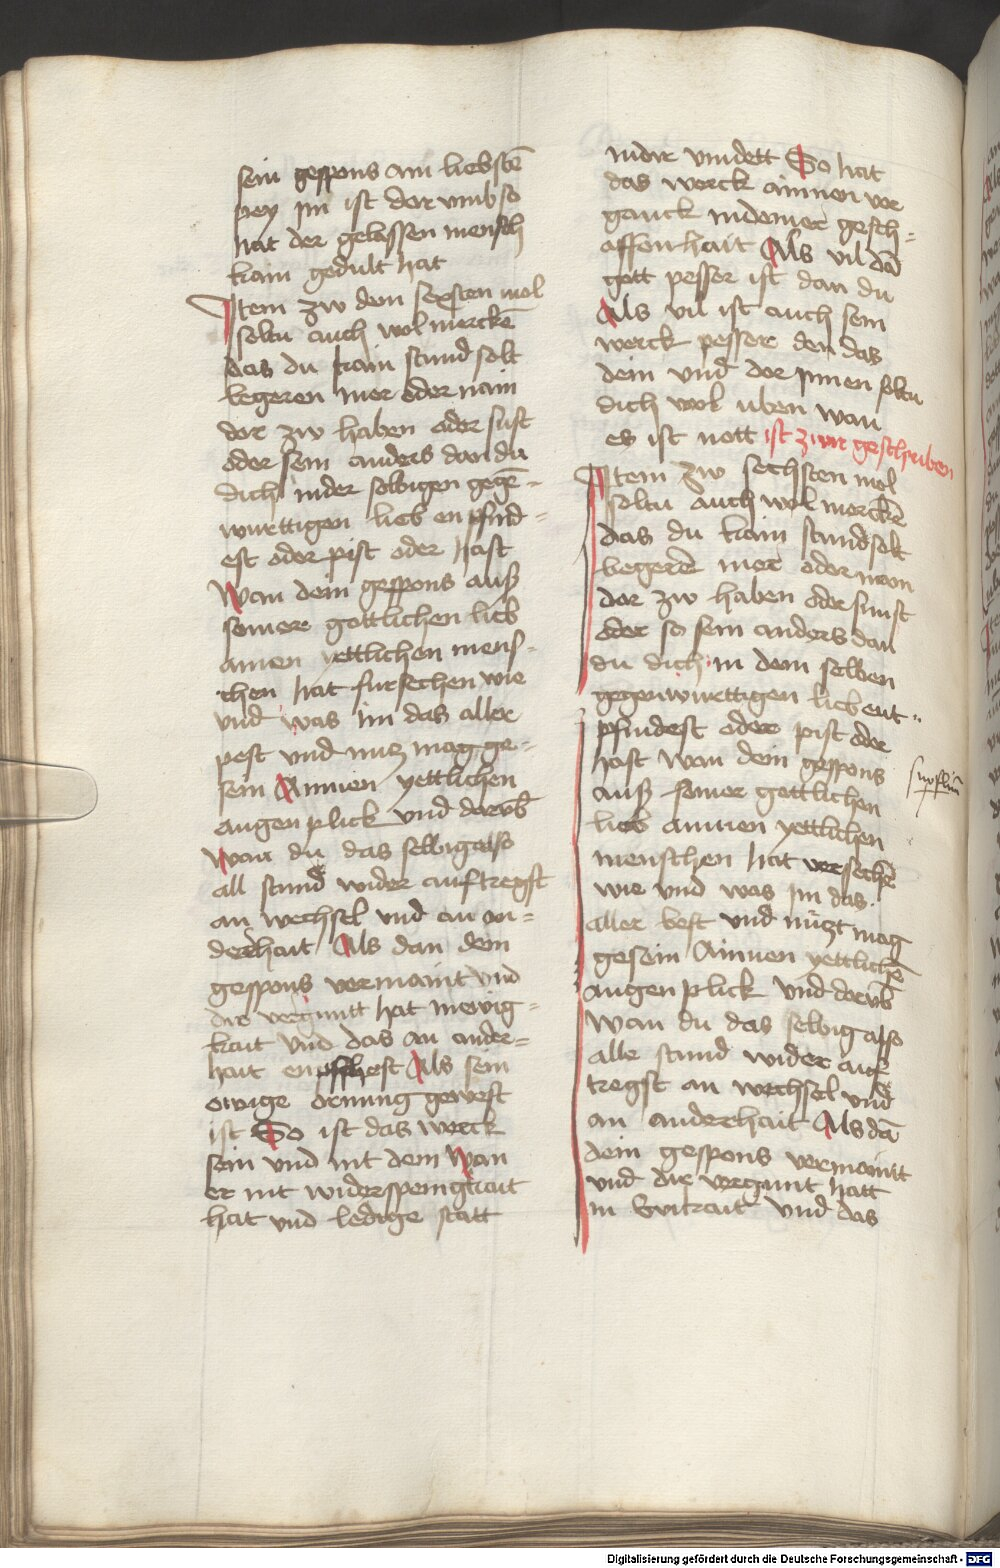 sein gespons am liebstē
pey im ist dar vmb so
hat der gelassen mensch
kain gedult hat
Item zw dem sexsten mol
soltu auch wol merckē
das du kain stund solt
begeren mer oder nain
dor zw haben oder sust
oder sein anders dan du
dich inder selbigen gegē-
wurttigen lieb enpfind-
est oder pist oder hast
Wan dein gespons auß
seinere gottlichen lieb
ainen yettlichen mens-
chen hat fursechen wie
vnd was im das aller
pest vnd nucz mag ge-
sein Ainnen yettlichen
augen plick vnd dorūb
Wan du das selbig also
all stund wider auftregst
an wechsel vnd an an-
derhait Als dan dein
gespons vermaint vnd
die verguntt hat inewig-
kait vnd das an ander-
hait enpfhest Als sein
ewige ornung gewest
ist So ist das werck
sein vnd nit dein Wan
er nit widerspenigkait
hat vnd ledige statt
indir vindett So hat
das werck ainnen vor
ganck indeiner gesch-
affenhait Als vil dā
gott pesser ist dan du
Als vil ist auch sein
werck pesser den das
dein vnd dor innen soltu
dich wol uben wan
es ist nott ist zwir geschriben
Item zw sechsten mol
soltu auch wol merckē
das du kain stund solt
begerē mer oder mon
dor zw haben oder sunst
oder so sein anders dan
du dich in dem selben
gegenwurttigen lieb ent-
pfindest oder pist oder
hast Wan dein gespons
auß seiner gottlichen
lieb ainnen yettlichen
menschen hat versechē
wie vnd was im das
aller best vnd nüczt mag
gesein Ainnen yettlichē
augen plick vnd dorūb
Wan du das selbig also
alle stund wider auf
tregst an wechsel vnd
an anderhait Als dā
dein gespons vermaintt
vnd die vergunt hatt
in Ewikait vnd das
Digitalisierung gefördert durch die Deutsche Forschungsgemeinschaft - DFG